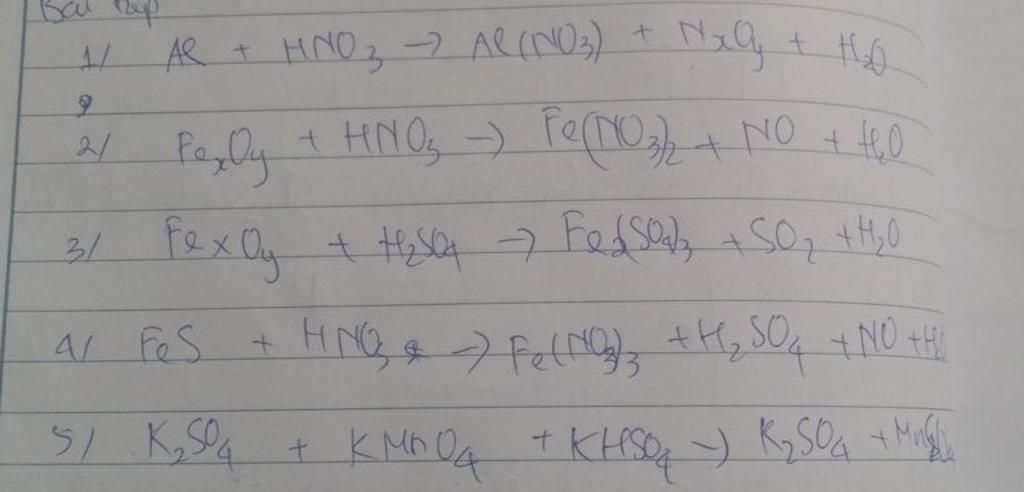 Bài tập
1/ Al + HNO3 → Al(NO3) + NxOy + H2O
2/ FexOy + HNO3 → Fe(NO3)2 + NO + H2O
3/ FexOy + H2SO4 → Fe2(SO4)3 + SO2 + H2O
4/ FeS + HNO3 → Fe(NO3)3 + H2SO4 + NO +
5/ K2SO4 + KMnO4 + KHSO4 → K2SO4 +